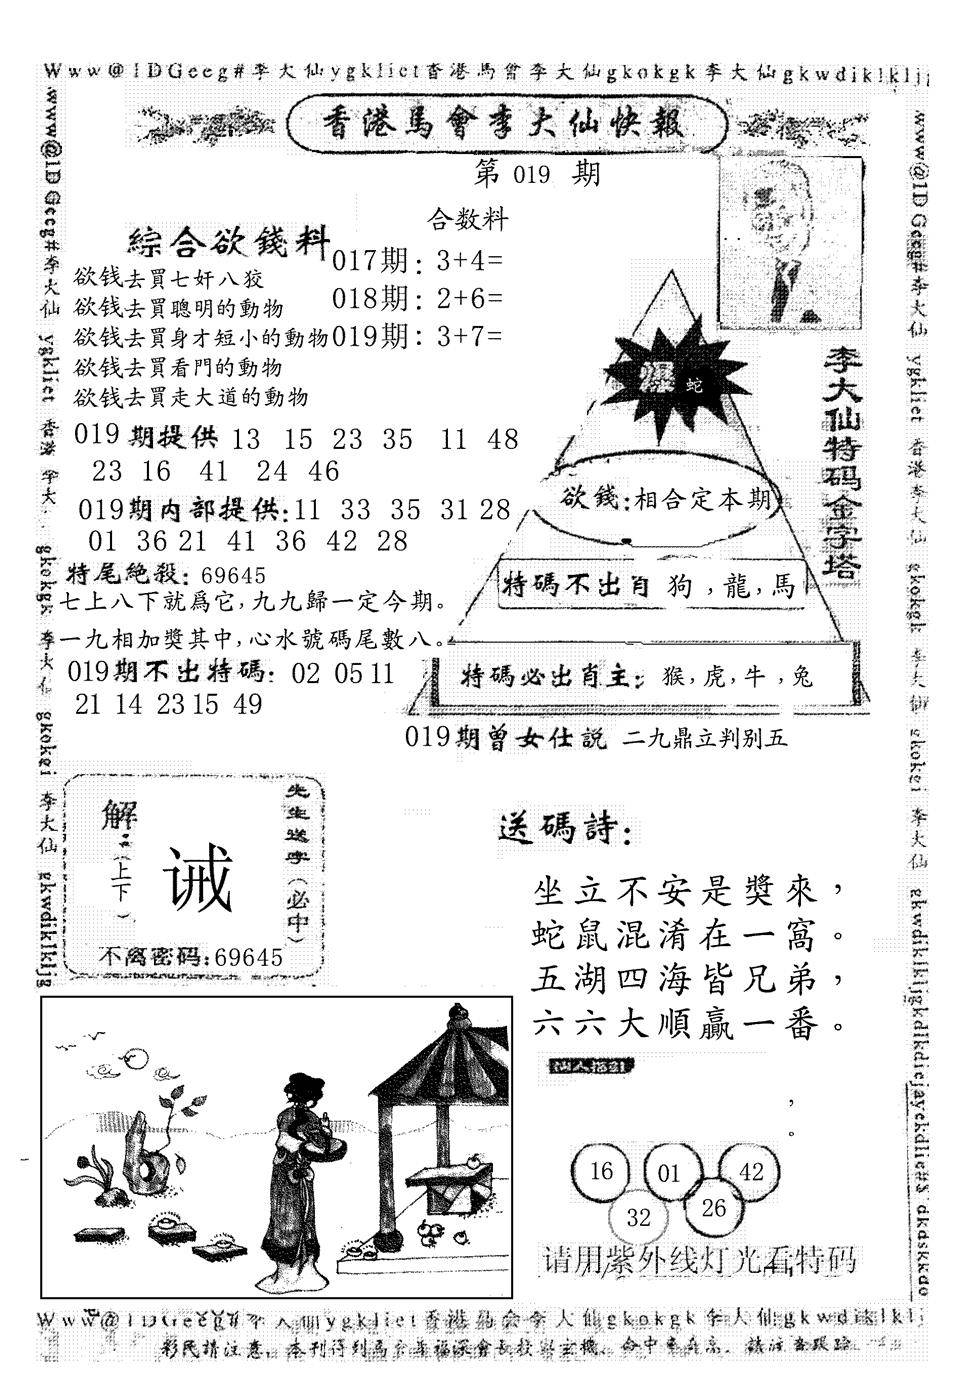 Www@1DGeeg#李大仙ygkliet香港馬會李大仙gkokgk李大仙gkwdiklkljg
香港馬會李大仙快報
第 019 期
合数料
綜合欲錢料
017期: 3+4=
018期: 2+6=
019期: 3+7=
欲钱去買七奸八狡
欲钱去買聰明的動物
欲钱去買身才短小的動物
欲钱去買看門的動物
欲钱去買走大道的動物
019期提供 13 15 23 35 11 48
23 16 41 24 46
019期内部提供:11 33 35 31 28
01 36 21 41 36 42 28
特尾絶殺: 69645
七上八下就爲它,九九歸一定今期。
一九相加獎其中,心水號碼尾數八。
019期不出特碼: 02 05 11
21 14 23 15 49
李大仙特码金字塔
爆 蛇
欲錢:相合定本期
特碼不出肖 狗,龍,馬
特碼必出肖主: 猴,虎,牛,兔
019期曾女仕説 二九鼎立判别五
先生送字(必中)
解:(上下)
诫
不离密码:69645
送碼詩:
坐立不安是獎來,
蛇鼠混淆在一窩。
五湖四海皆兄弟,
六六大順贏一番。
,
。
16 01 42
32 26
请用紫外线灯光看特码
www@1DGeeg#李大仙 ygkliet 香港 李大 gkokgk 李大仙 gkokei 李大仙 gkwdiklkljg
www@1DGeeg#李大仙 ygkliet 香港李大仙 gkokgk 李大仙 gkokei 李大仙 gkwdiklkljgkdlkdiejayekdlie#$ dkdskkdo
Www@1DGeeg#李大仙ygkliet香港馬会李大仙gkokgk李大仙gkwdiklklj
彩民請注意,本刊得到馬会